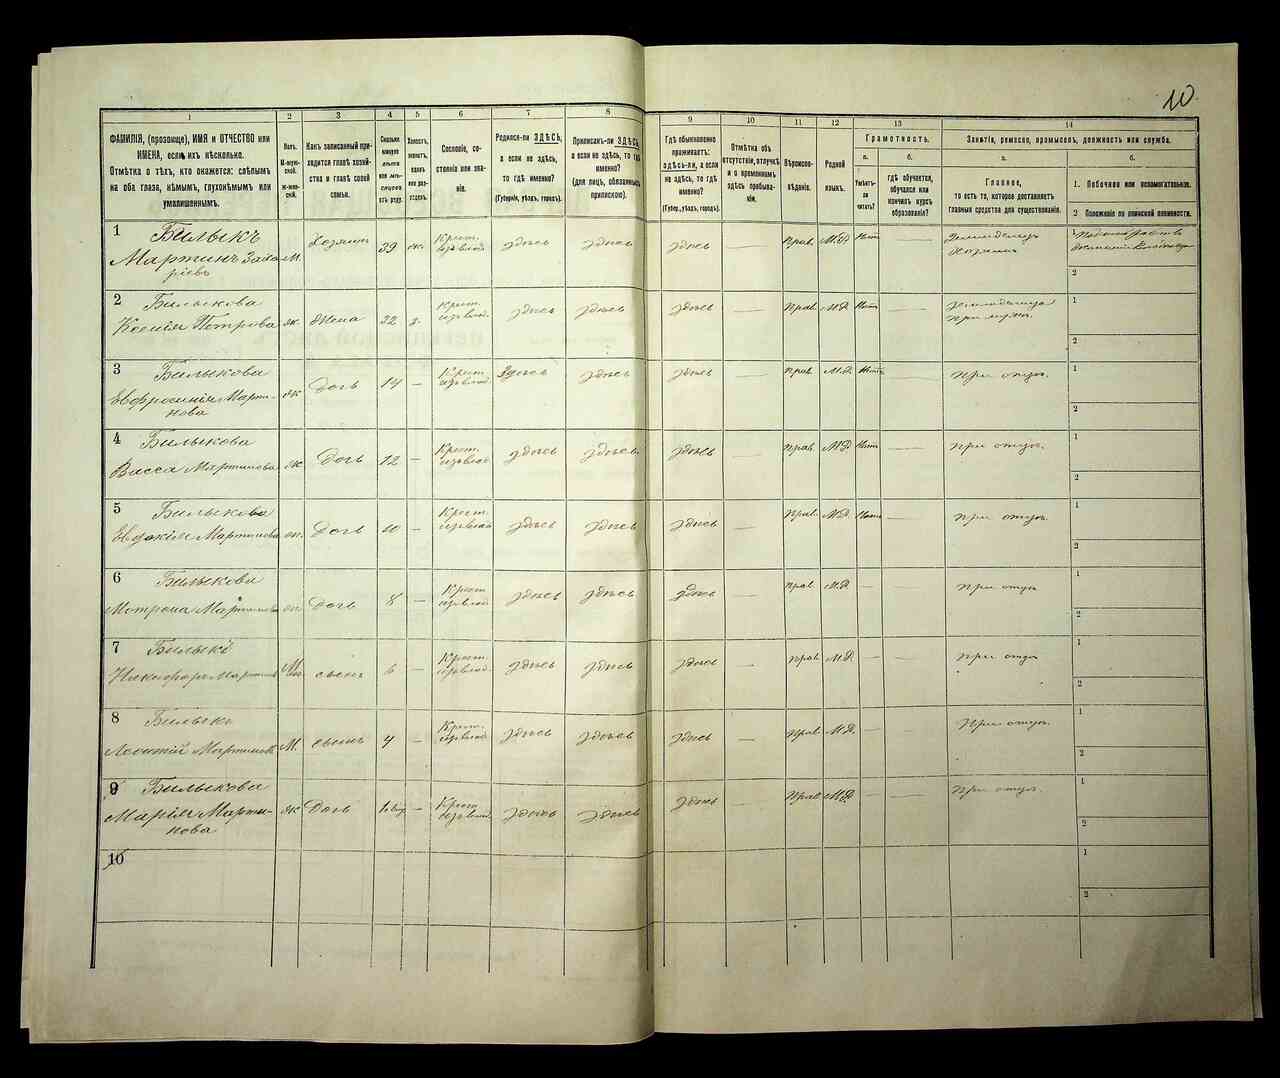 10
1
2
3
4
5
6
7
8
9
10
11
12
13
14
ФАМИЛІЯ, (прозвище), ИМЯ и ОТЧЕСТВО или
ИМЕНА, если ихъ нѣсколько.
Отмѣтка о тѣхъ, кто окажется: слѣпымъ
на оба глаза, нѣмымъ, глухонѣмымъ или
умалишеннымъ.
Полъ.
М-муж-
ской.
Ж-жен-
скій.
Какъ записанный при-
ходится главѣ хозяй-
ства и главѣ своей
семьи.
Сословіе, со-
стояніе или зва-
ніе.
Родился-ли ЗДѢСЬ,
а если не здѣсь,
то гдѣ именно?
(Губернія, уѣздъ, городъ).
Приписанъ-ли ЗДѢСЬ,
а если не здѣсь, то гдѣ
именно?
(для лицъ, обязанныхъ
припискою).
Гдѣ обыкновенно
проживаетъ:
здѣсь-ли, а если
не здѣсь, то гдѣ
именно?
(Губер., уѣздъ, городъ).
Отмѣтка объ
отсутствіи, отлучкѣ
и о временномъ
здѣсь пребыва-
ніи.
Вѣроиспо-
вѣданіе.
Родной
языкъ.
Грамотность.
а.
Умѣетъ-
ли
читать?
б.
гдѣ обучается,
обучался или
кончилъ курсъ
образованія?
Занятіе, ремесло, промыселъ, должность или служба.
а.
Главное,
то есть то, которое доставляетъ
главныя средства для существованія.
б.
1. Побочное или вспомогательное.
2 Положеніе по воинской повинности.
1 Билыкъ
Мартинъ Заха М. Хозяинъ 39 ж. Крест. здѣсь здѣсь здѣсь — Прав. М.Р. Нѣтъ — Земледѣлецъ 1
ріевъ Хозяинъ 2
2 Билыкова
Ксенія Петрова ж. Жена 32 з. Крест. здѣсь здѣсь здѣсь — Прав. М.Р. Нѣтъ — 1
при мужѣ. 2
3 Билыкова
Евфросинія Марти- ж Дочь 14 — Крест. Здѣсь здѣсь здѣсь — Прав. М.Р. Нѣтъ — при отцѣ. 1
нова 2
4 Билыкова
Васса Мартинова ж Дочь 12 — Крест. здѣсь здѣсь здѣсь — Прав. М.Р. Нѣтъ — при отцѣ. 1
2
5 Билыкова
Мартинова ж. Дочь 10 — Крест. здѣсь здѣсь здѣсь — Прав. М.Р. Нѣтъ — при отцѣ. 1
2
6 Билыкова
Мотрона Мартинова ж. Дочь 8 — Крест. здѣсь здѣсь здѣсь — Прав. М.Р. — — при отцѣ 1
2
7 Билыкъ
Никифоръ Мартинов М. сынъ 6 — Крест. здѣсь здѣсь здѣсь — Прав. М.Р. — — при отцѣ 1
2
8 Билыкъ
Леонтій Мартинов М. сынъ 4 — Крест. здѣсь здѣсь здѣсь — Прав. М.Р. — — При отцѣ. 1
2
9 Билыкова
Марія Марти- ж Дочь — Крест. здѣсь здѣсь здѣсь — Прав. М.Р. — — При отцѣ. 1
нова 2
10 1
2